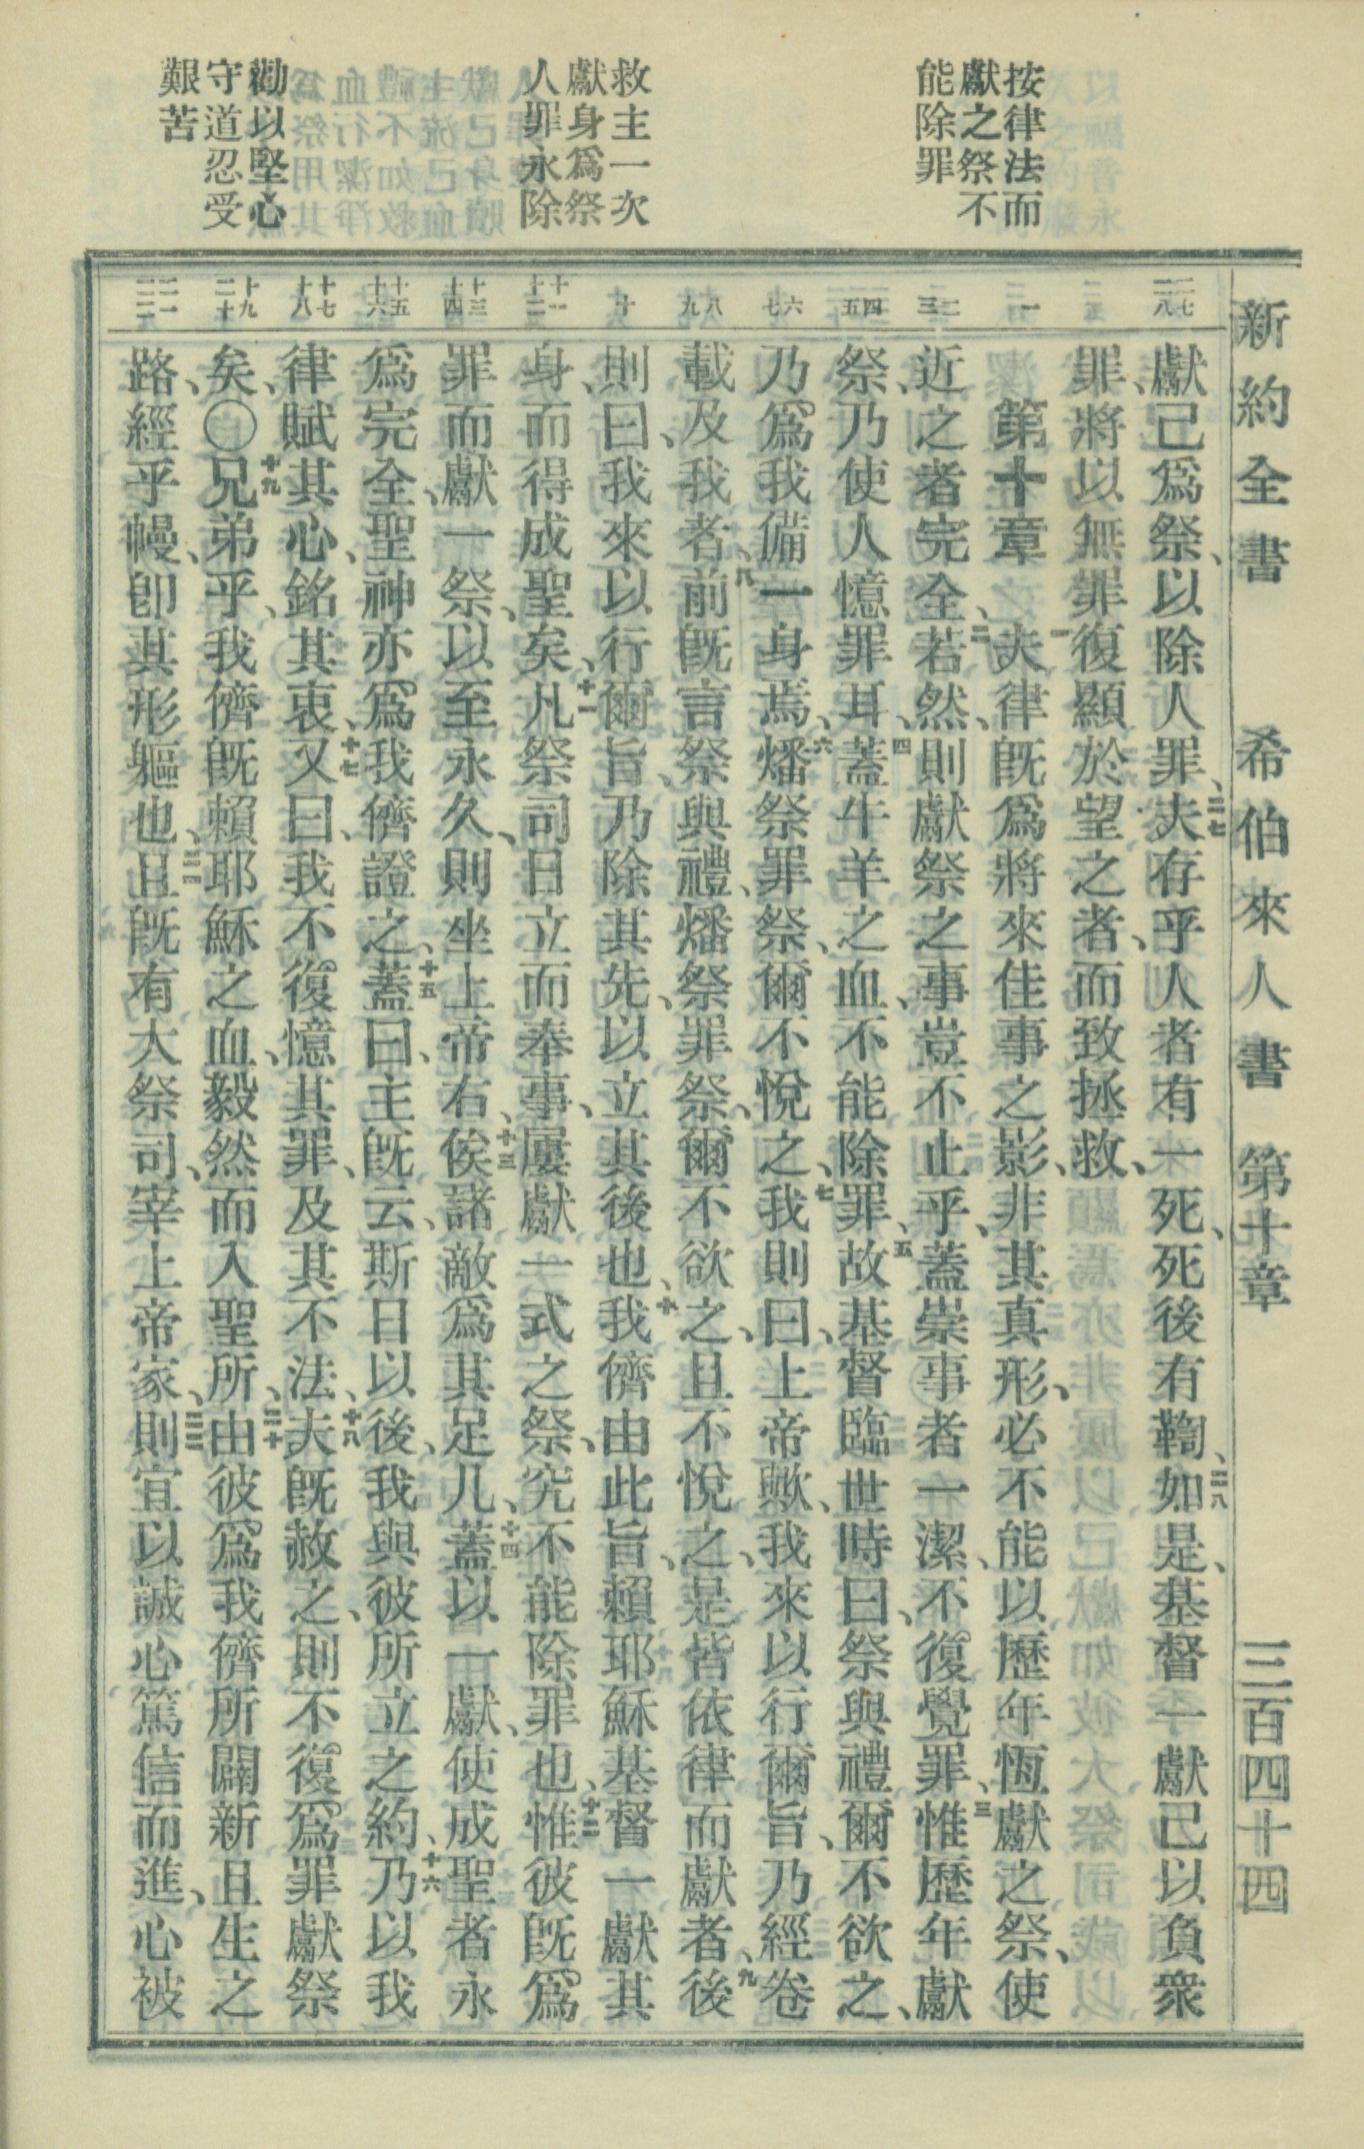 新約全書　希伯來人書　第十章　三百四十四
按律法而
獻之祭不
能除罪
救主一次
獻身爲祭
人罪永除
勸以堅心
守道忍受
艱苦
二七
二八
一
二
三
四
五
六
七
八
九
十
十一
十二
十三
十四
十五
十六
十七
十八
十九
二十
二一
二二
獻己爲祭、以除人罪、二七夫存乎人者有一死、死後有鞫、二八如是、基督一獻己以負衆
罪、將以無罪復顯於望之者、而致拯救、
第十章　一夫律旣爲將來佳事之影、非其真形、必不能以歷年恆獻之祭、使
近之者完全、二若然、則獻祭之事豈不止乎、蓋崇事者一潔、不復覺罪、三惟歷年獻
祭、乃使人憶罪耳、四蓋牛羊之血、不能除罪、五故基督臨世時曰、祭與禮爾不欲之、
乃爲我備一身焉、六燔祭罪祭、爾不悅之、七我則曰、上帝歟、我來以行爾旨、乃經卷
載及我者、八前旣言祭與禮、燔祭罪祭、爾不欲之、且不悅之、是皆依律而獻者、九後
則曰、我來以行爾旨、乃除其先、以立其後也、十我儕由此旨、賴耶穌基督一獻其
身、而得成聖矣、十一凡祭司日立而奉事、屢獻一式之祭、究不能除罪也、十二惟彼旣爲
罪而獻一祭、以至永久、則坐上帝右、十三俟諸敵爲其足几、十四蓋以一獻、使成聖者永
爲完全、聖神亦爲我儕證之、十五蓋曰、主旣云、斯日以後、我與彼所立之約、十六乃以我
律賦其心、銘其衷、十七又曰、我不復憶其罪、及其不法、十八夫旣赦之、則不復爲罪獻祭
矣、〇十九兄弟乎、我儕旣賴耶穌之血、毅然而入聖所、二十由彼爲我儕所闢新且生之
路、經乎幔、卽其形軀也、二一且旣有大祭司、宰上帝家、二二則宜以誠心篤信而進、心被